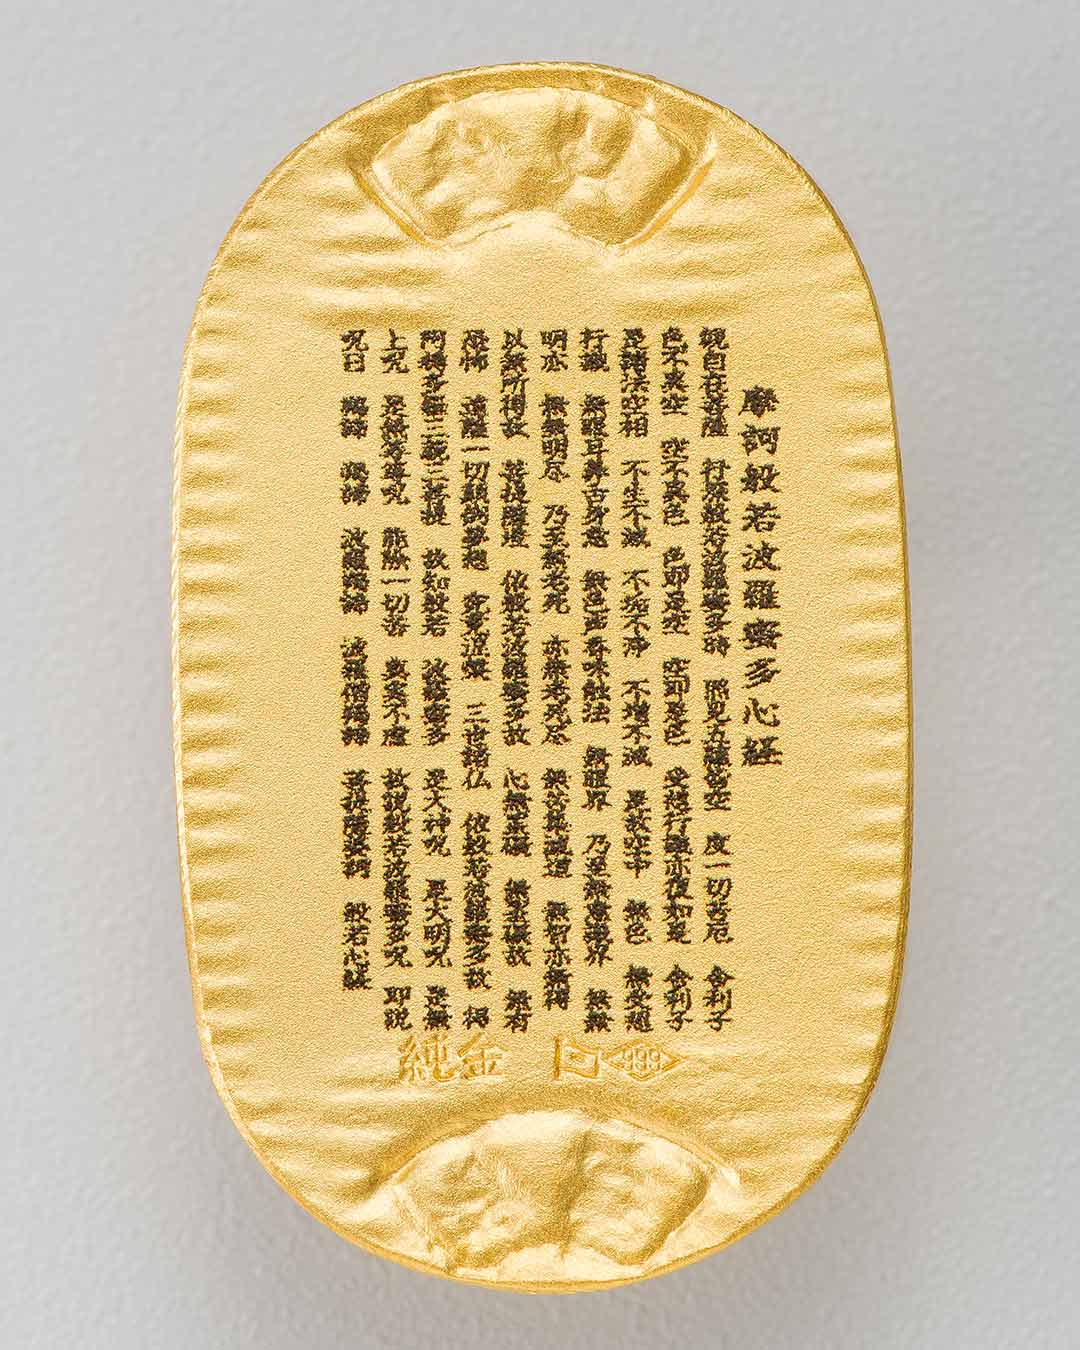 摩訶般若波羅蜜多心経
観自在菩薩 行深般若波羅蜜多時 照見五蘊皆空 度一切苦厄 舎利子
色不異空 空不異色 色即是空 空即是色 受想行識亦復如是 舎利子
是諸法空相 不生不滅 不垢不浄 不増不減 是故空中 無色 無受想
行識 無眼耳鼻舌身意 無色声香味触法 無眼界 乃至無意識界 無無
明亦 無無明尽 乃至無老死 亦無老死尽 無苦集滅道 無智亦無得
以無所得故 菩提薩埵 依般若波羅蜜多故 心無罣礙 無罣礙故 無有
恐怖 遠離一切顛倒夢想 究竟涅槃 三世諸仏 依般若波羅蜜多故 得
阿耨多羅三藐三菩提 故知般若 波羅蜜多 是大神呪 是大明呪 是無
上呪 是無等等呪 能除一切苦 真実不虚 故説般若波羅蜜多呪 即説
呪曰 羯諦 羯諦 波羅羯諦 波羅僧羯諦 菩提薩婆訶 般若心経
純金 999